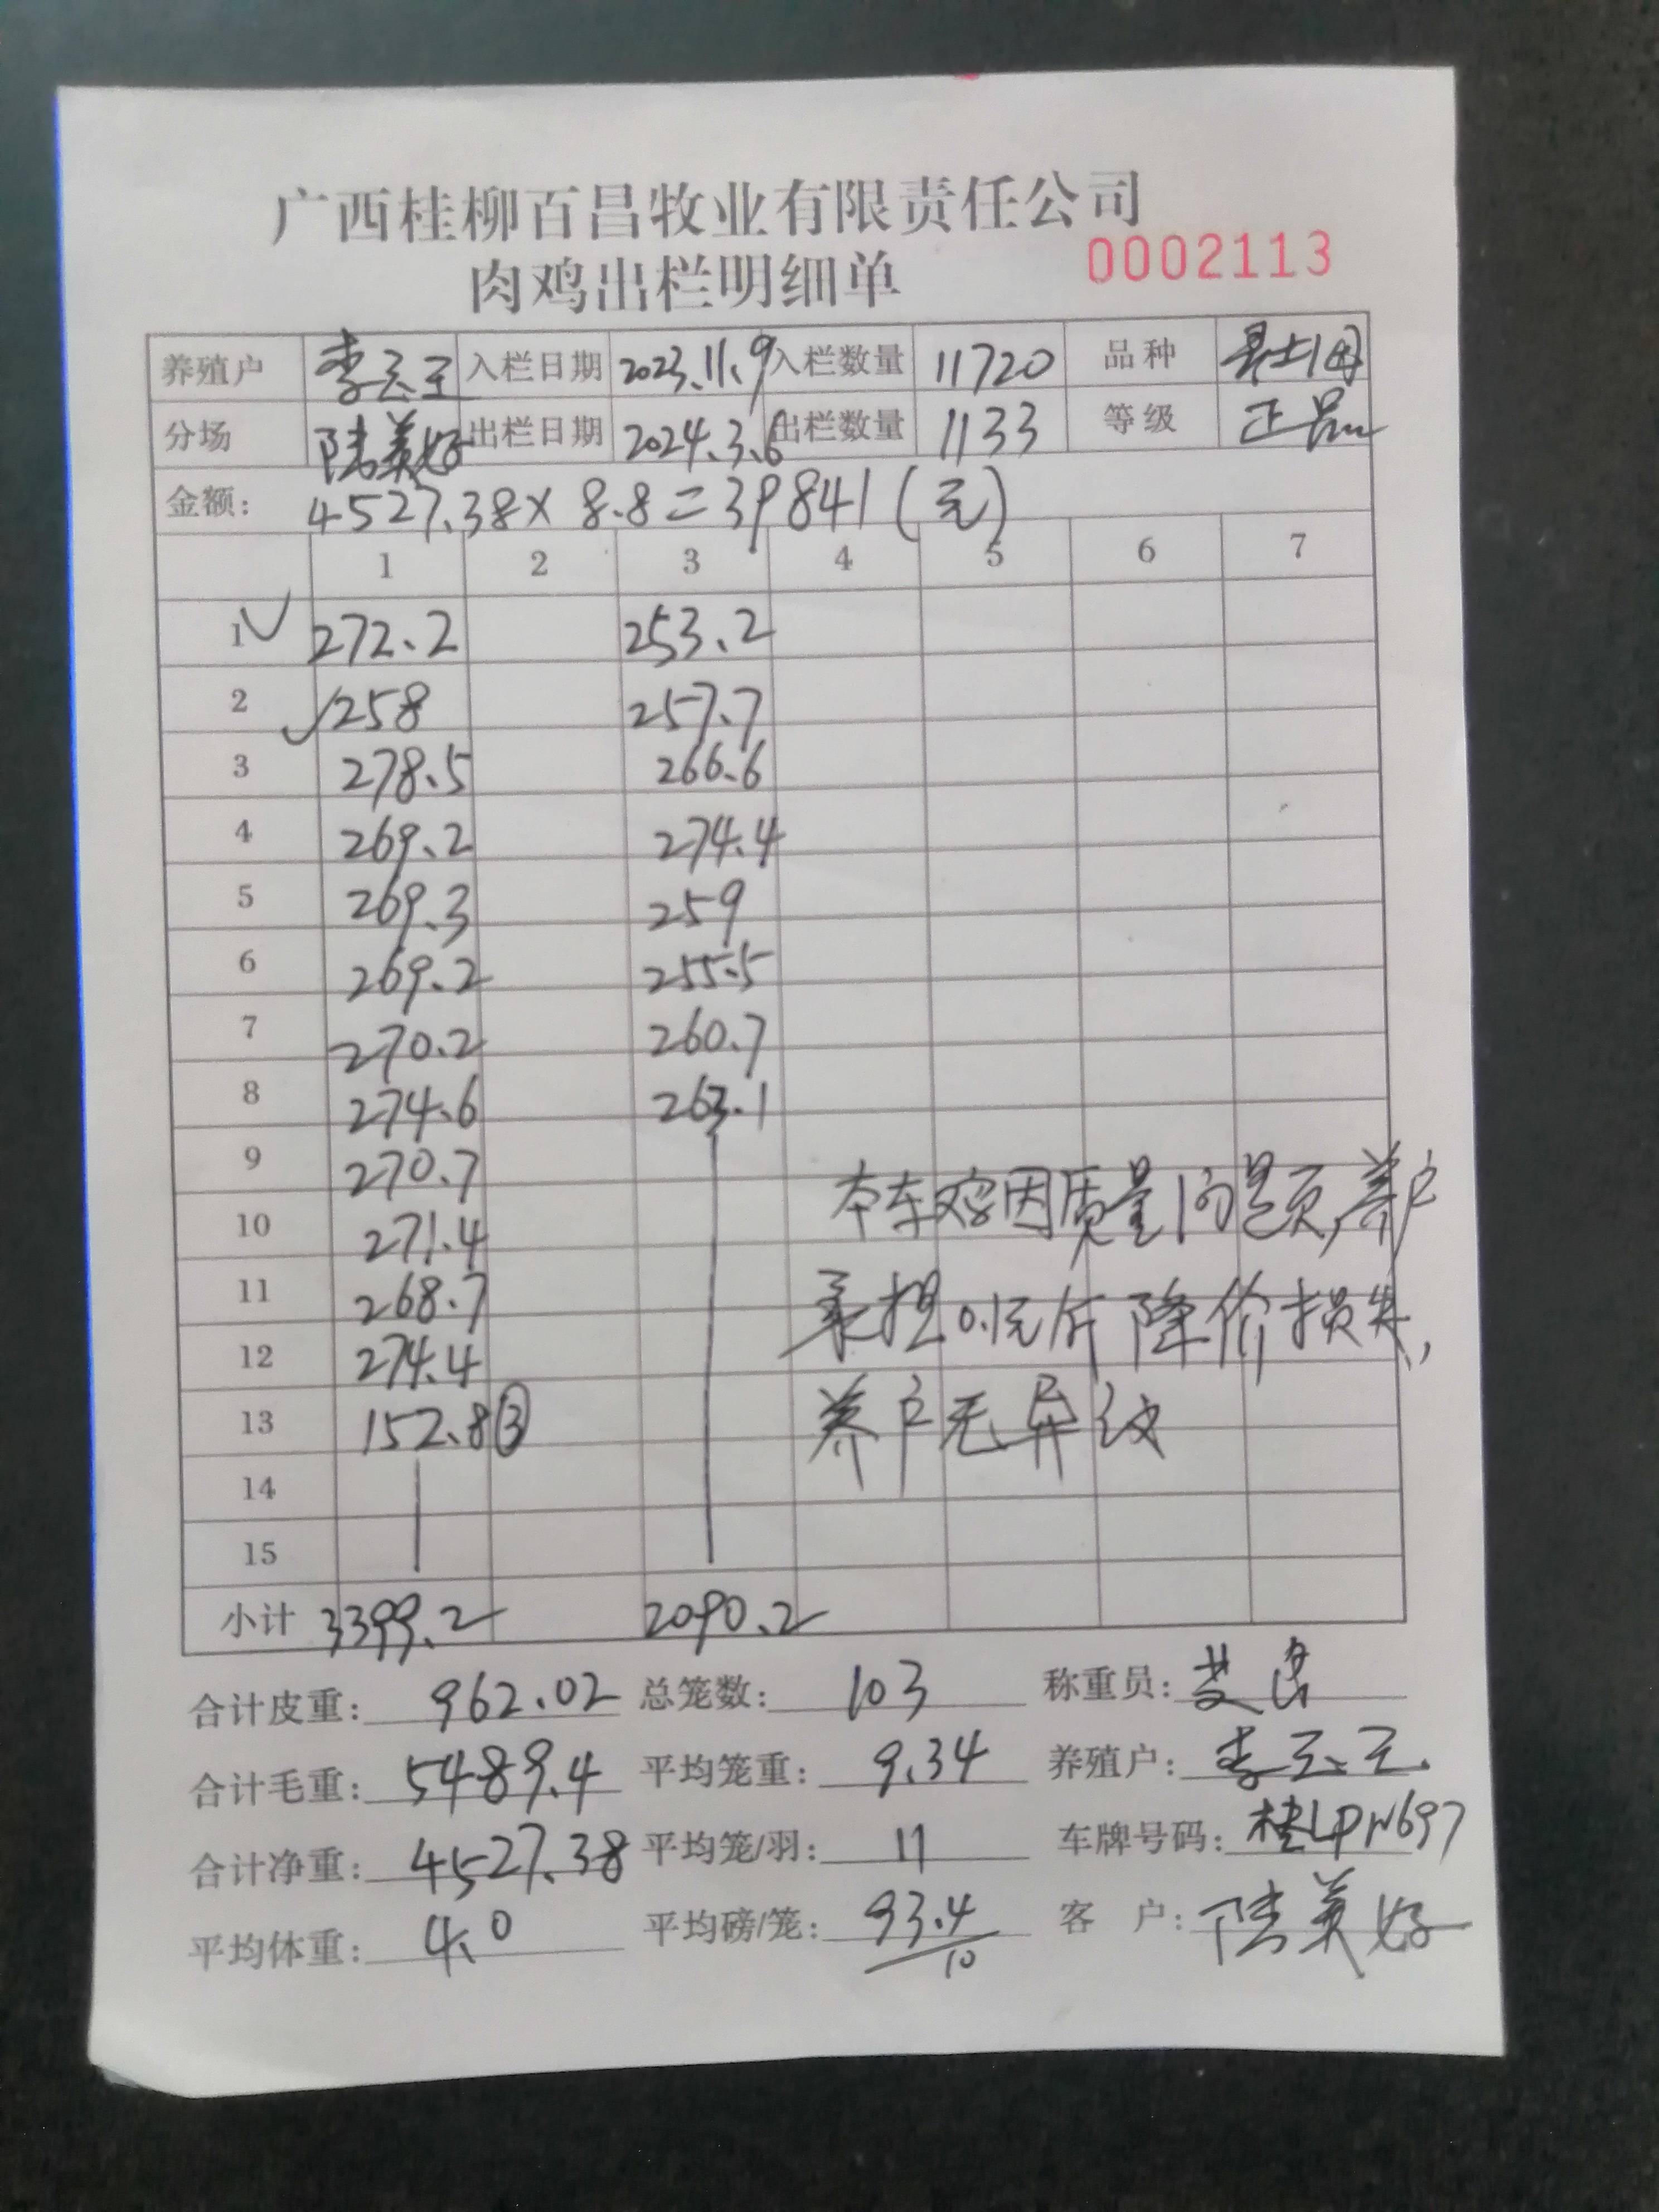 广西桂柳百昌牧业有限责任公司
肉鸡出栏明细单 0002113
养殖户 李 入栏日期 2023.11.9 入栏数量 11720 品种
分场 陆美好 出栏日期 2024.3.6 出栏数量 1133 等级 正品
金额: 4527.38 × 8.8 = 39841 (元)
1 2 3 4 5 6 7
1 272.2 253.2
2 258 257.7
3 278.5 266.6
4 269.2 274.4
5 269.3 259
6 269.2 255.5
7 270.2 260.7
8 274.6 263.1
9 270.7
10 271.4
11 268.7
12 274.4
13 152.8 ③
14
15
本车鸡因质量问题,养户
承担0.1元/斤降价损失,
养户无异议
小计 3399.2 2090.2
合计皮重: 962.02 总笼数: 103 称重员:
合计毛重: 5489.4 平均笼重: 9.34 养殖户: 李
合计净重: 4527.38 平均笼/羽: 11 车牌号码: 桂LPW697
平均体重: 4.0 平均磅/笼: 93.4/10 客 户: 陆美好